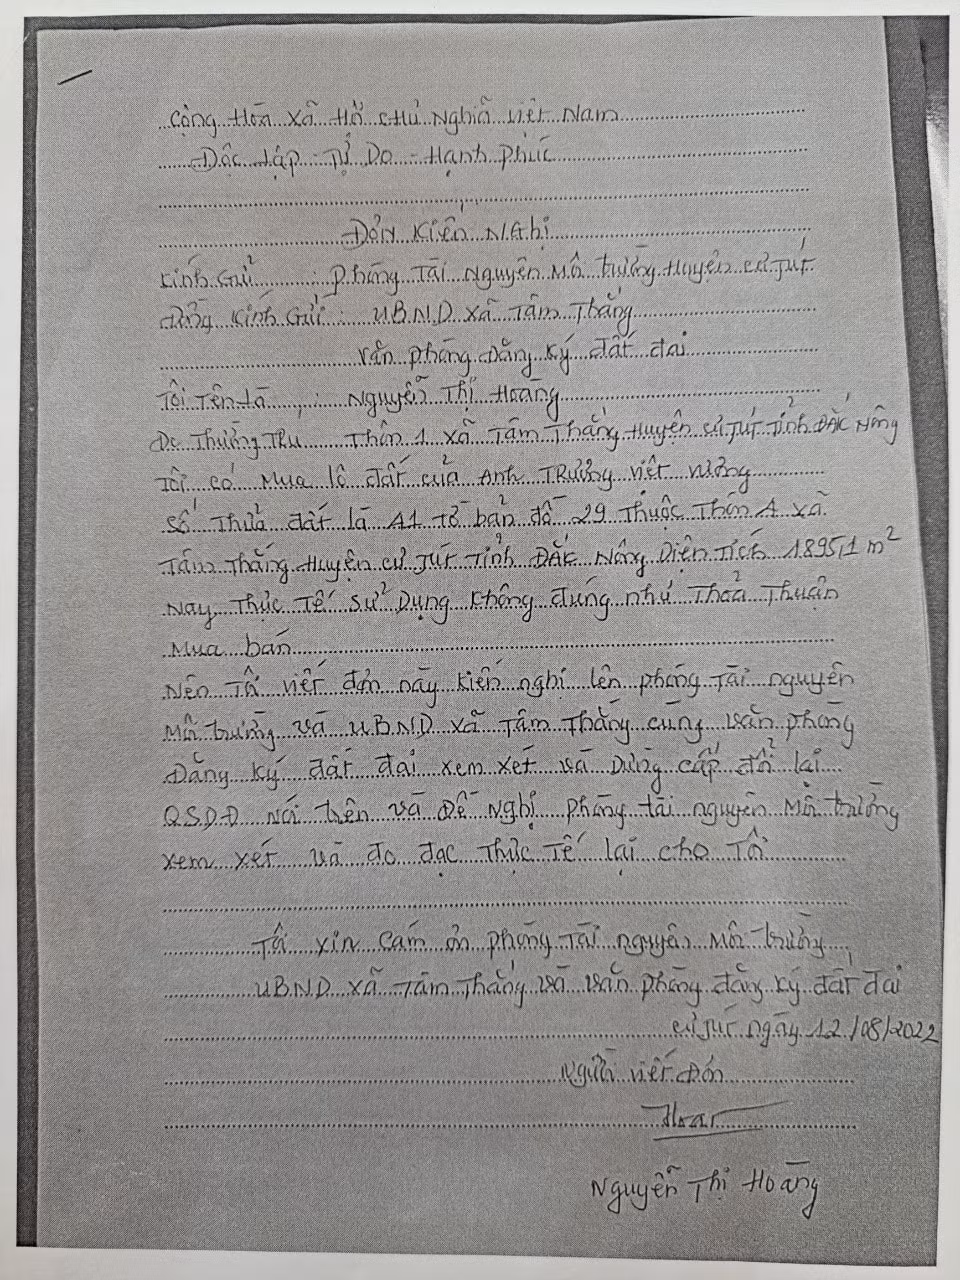 Cộng Hòa Xã Hội Chủ Nghĩa Việt Nam
Độc Lập - Tự Do - Hạnh Phúc
Đơn Kiến Nghị
Kính Gửi : Phòng Tài Nguyên Môi trường Huyện Cư Jút
Đồng Kính Gửi : U.B.N.D xã Tâm Thắng
Văn phòng Đăng ký đất đai
Tôi Tên Là : Nguyễn Thị Hoàng
Đc Thường Trú Thôn 1 xã Tâm Thắng Huyện Cư Jút Tỉnh Đắc Nông
Tôi có Mua lô đất của Anh Trương Viết Vương
Số Thửa đất là A1 tờ bản đồ 29 Thuộc Thôn 1 xã
Tâm Thắng Huyện cư Jút Tỉnh Đắc Nông Diện Tích 1895,1 m²
Nay Thực Tế sử Dụng không đúng như Thỏa Thuận
Mua bán
Nên Tôi viết đơn này kiến nghị lên phòng Tài nguyên
Môi trường và U.B.N.D xã Tâm Thắng cùng văn phòng
Đăng ký đất đai xem xét và Dừng cấp đổi lại
Q.S.D.Đ nói trên và Đề Nghị phòng tài nguyên Môi trường
xem xét và đo đạc Thực Tế lại cho Tôi
Tôi xin cám ơn phòng Tài nguyên Môi trường
U.B.N.D xã Tâm Thắng và văn phòng đăng ký đất đai
cư Jút ngày 12/08/2022
Người viết Đơn
Hoàng
Nguyễn Thị Hoàng